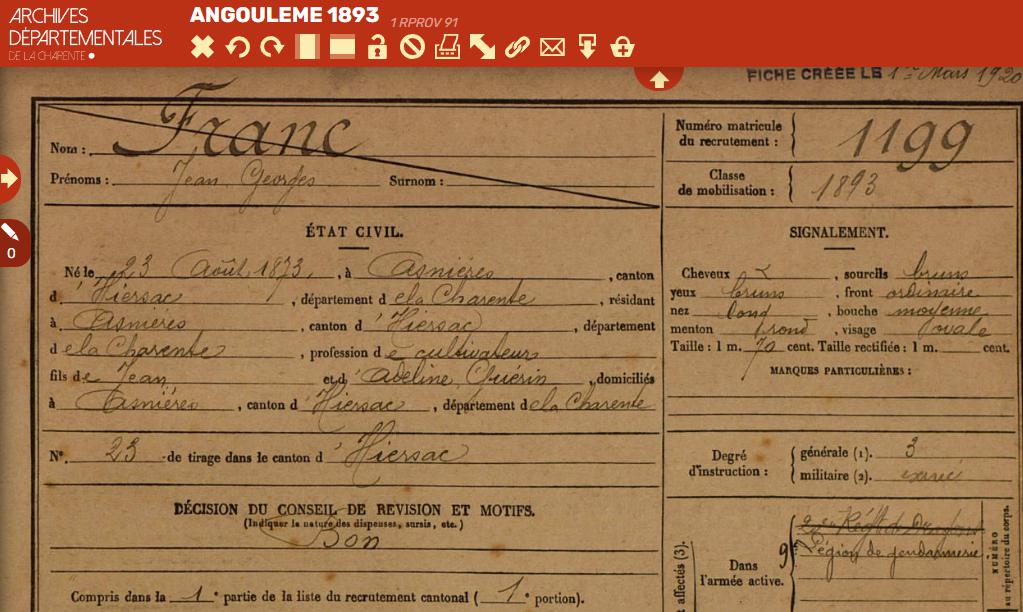 ARCHIVES
DÉPARTEMENTALES
DE LA CHARENTE
ANGOULEME 1893 1 RPROV 91
0
FICHE CRÉÉE LE 1er Mars 1920
Nom : Franc
Prénoms : Jean Georges Surnom :
Numéro matricule
du recrutement : 1199
Classe
de mobilisation : 1893
ÉTAT CIVIL.
Né le 23 Août 1873, à Asnières, canton
d'Hiersac, département de la Charente, résidant
à Asnières, canton d'Hiersac, département
de la Charente, profession de cultivateur
fils de Jean et d'Adeline Guérin, domiciliés
à Asnières, canton d'Hiersac, département de la Charente
N° 23 de tirage dans le canton d'Hiersac
DÉCISION DU CONSEIL DE REVISION ET MOTIFS.
(Indiquer la nature des dispenses, sursis, etc.)
Bon
Compris dans la 1e partie de la liste du recrutement cantonal ( 1e portion).
SIGNALEMENT.
Cheveux , sourcils bruns
yeux bruns , front ordinaire
nez long , bouche moyenne
menton rond , visage ovale
Taille : 1 m. 70 cent. Taille rectifiée : 1 m. cent.
MARQUES PARTICULIÈRES :
Degré
d'instruction :
générale (1). 3
militaire (2). exercé
affectés (3).
Dans
l'armée active.
Régt de Dragons
9e Légion de gendarmerie
NUMÉRO
au répertoire du corps.